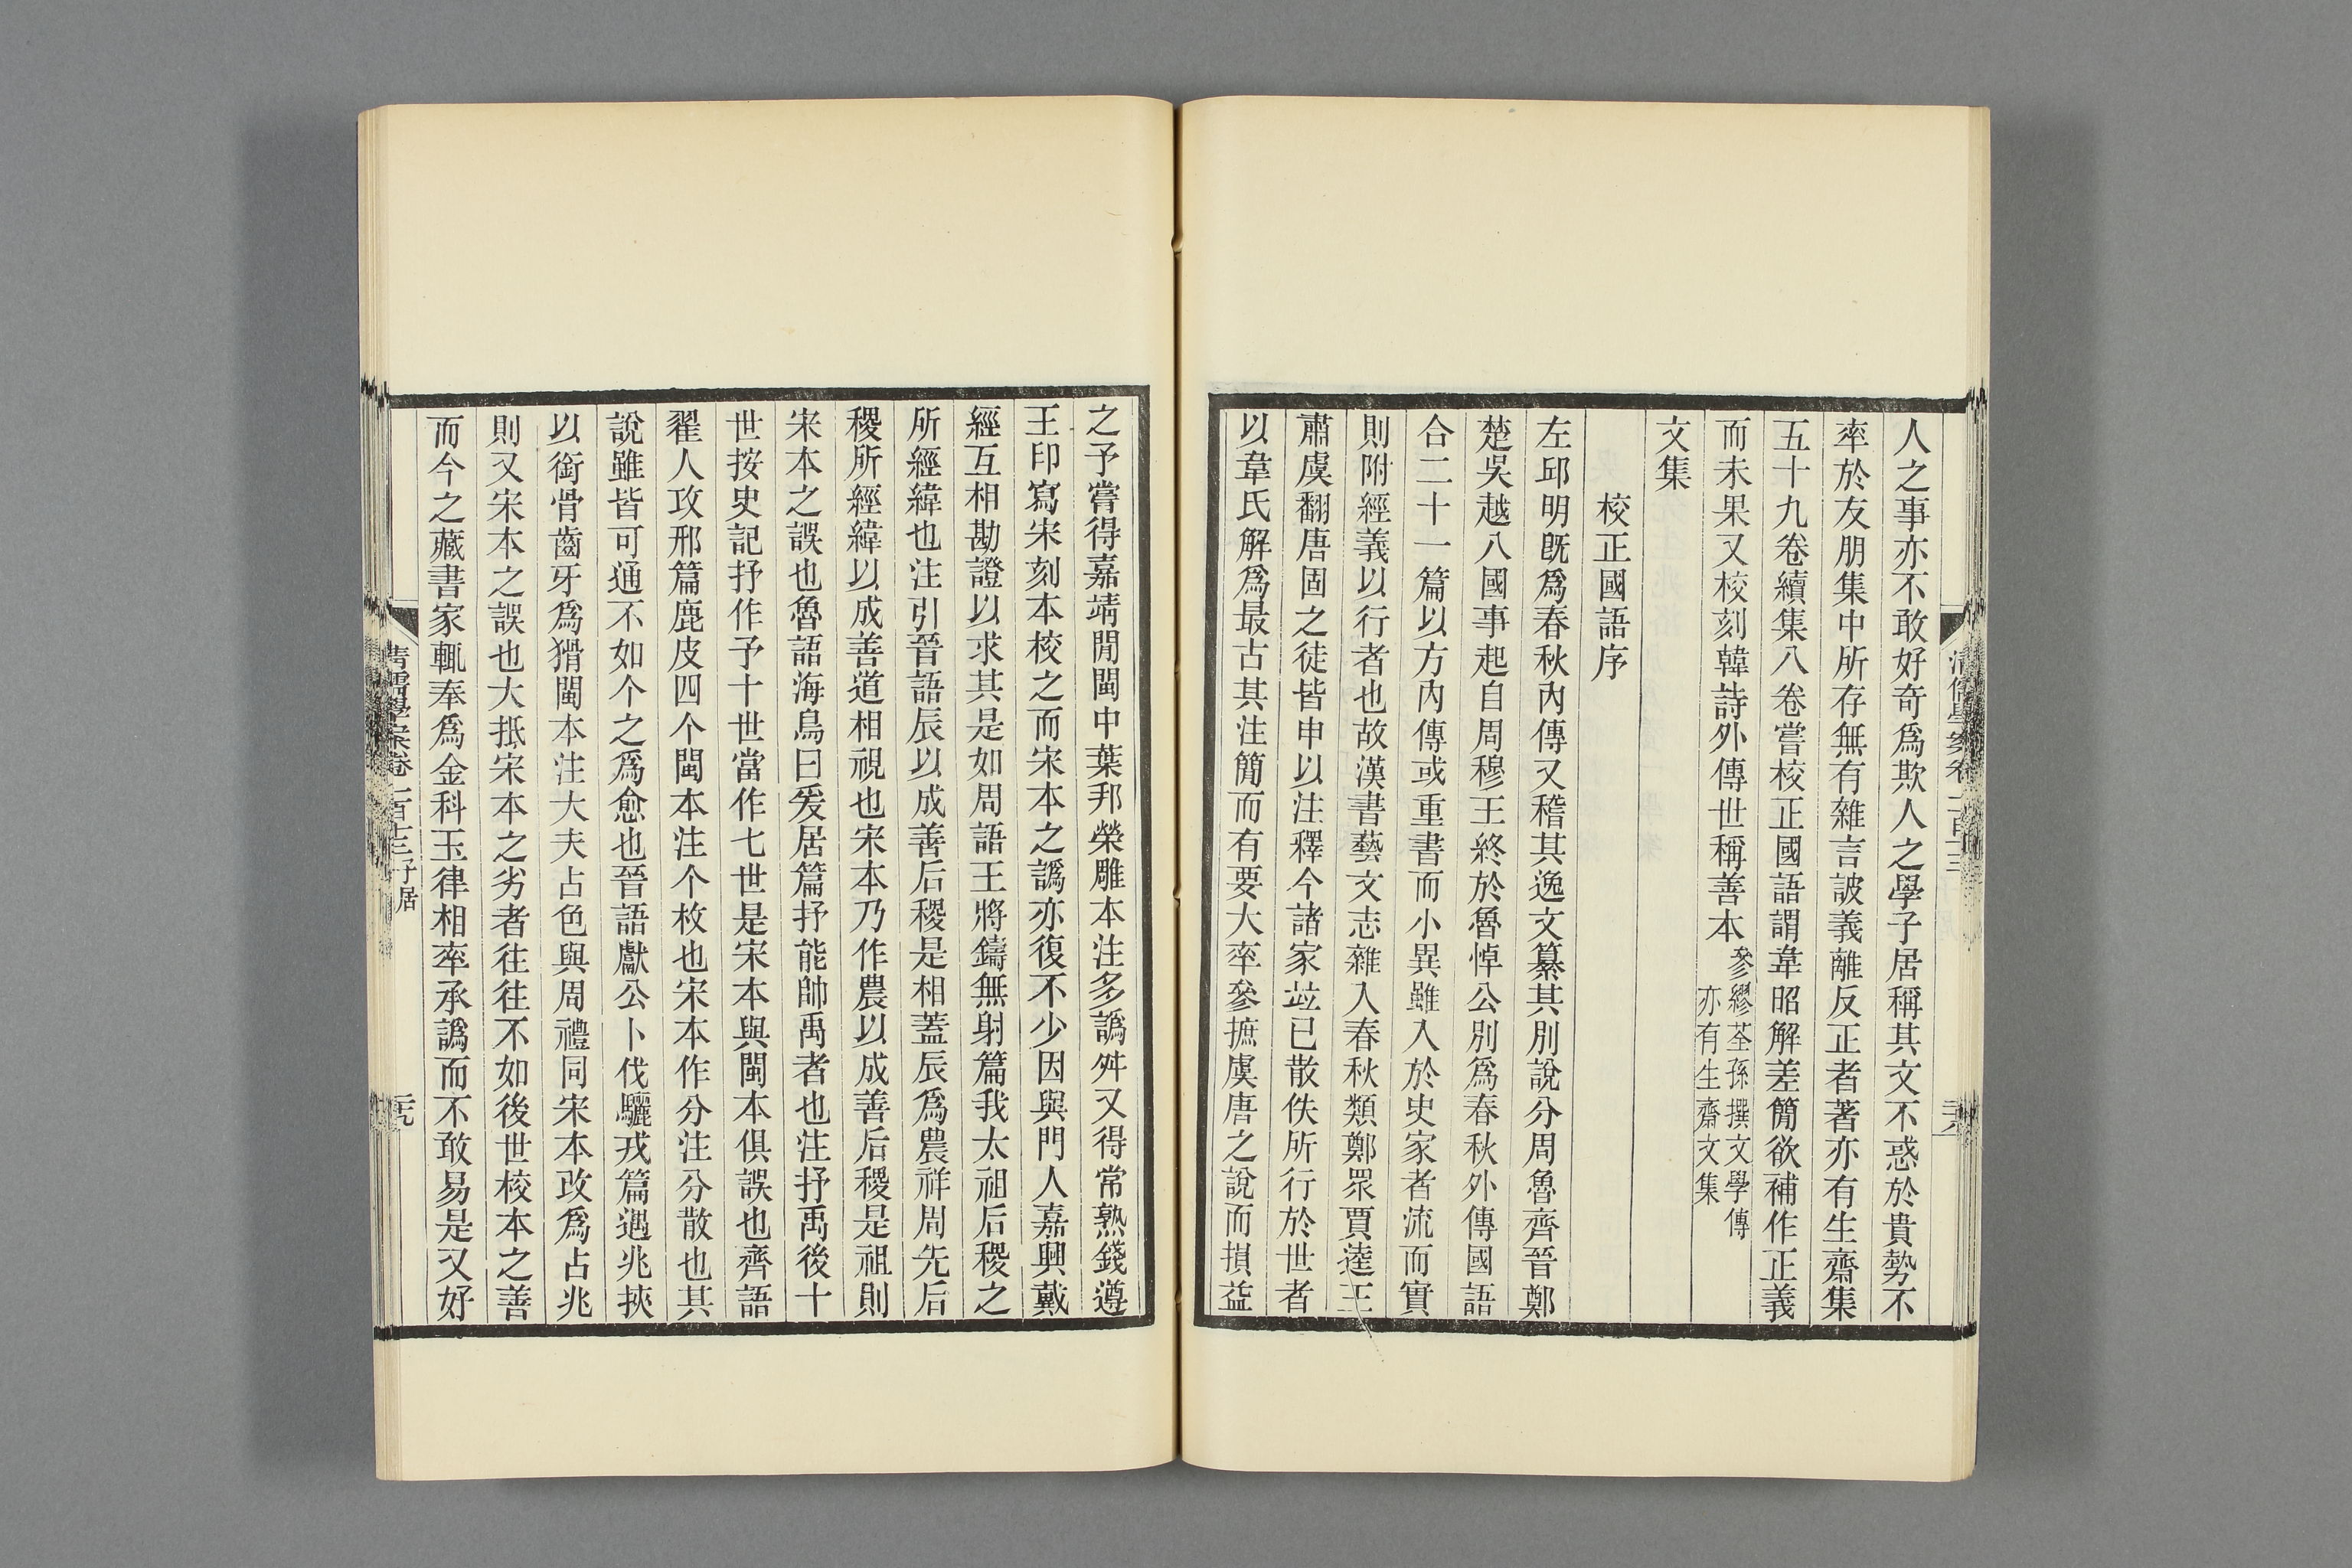 人之事亦不敢好奇爲欺人之學子居稱其文不惑於貴勢不
率於友朋集中所存無有雜言詖義離反正者著亦有生齋集
五十九卷續集八卷嘗校正國語謂韋昭解差簡欲補作正義
而未果又校刻韓詩外傳世稱善本
參繆荃孫撰文學傳
亦有生齋文集
文集
校正國語序
左邱明旣爲春秋內傳又稽其逸文纂其別說分周魯齊晉鄭
楚吳越八國事起自周穆王終於魯悼公別爲春秋外傳國語
合二十一篇以方內傳或重書而小異雖入於史家者流而實
則附經義以行者也故漢書藝文志雜入春秋類鄭眾賈逵王
肅虞翻唐固之徒皆申以注釋今諸家竝已散佚所行於世者
以韋氏解爲最古其注簡而有要大率參摭虞唐之說而損益
之予嘗得嘉靖閒閩中葉邦榮雕本注多譌舛又得常熟錢遵
王印寫宋刻本校之而宋本之譌亦復不少因與門人嘉興戴
經互相勘證以求其是如周語王將鑄無射篇我太祖后稷之
所經緯也注引晉語辰以成善后稷是相蓋辰爲農祥周先后
稷所經緯以成善道相視也宋本乃作農以成善后稷是祖則
宋本之誤也魯語海鳥曰爰居篇抒能帥禹者也注抒禹後十
世按史記抒作予十世當作七世是宋本與閩本俱誤也齊語
翟人攻邢篇鹿皮四个閩本注个枚也宋本作分注分散也其
說雖皆可通不如个之爲愈也晉語獻公卜伐驪戎篇遇兆挾
以銜骨齒牙爲猾閩本注大夫占色與周禮同宋本改爲占兆
則又宋本之誤也大抵宋本之劣者往往不如後世校本之善
而今之藏書家輒奉爲金科玉律相率承譌而不敢易是又好
清儒學案卷一百十三 子居
二十九